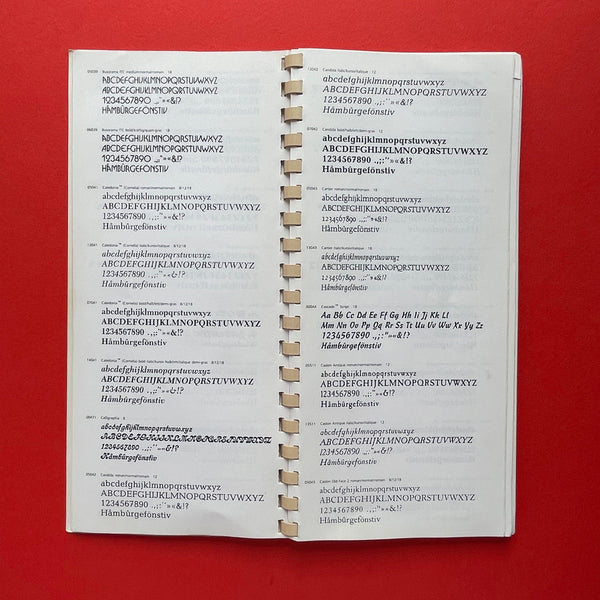 Busorama ITC
ABCDEFGHIJKLMNOPQRSTUVWXYZ
ABCDEFGHIJKLMNOPQRSTUVWXYZ
1234567890 .,;"»«&!?
HÅMBÛRGEFÖNSTIV
Busorama ITC
ABCDEFGHIJKLMNOPQRSTUVWXYZ
ABCDEFGHIJKLMNOPQRSTUVWXYZ
1234567890 .,;"»«&!?
HÅMBÛRGEFÖNSTIV
05041 Caledonia™ (Cornelia) roman/normal/romain 8/12/18
abcdefghijklmnopqrstuvwxyz
ABCDEFGHIJKLMNOPQRSTUVWXYZ
1234567890 .,;:"»«&!?
Håmbûrgefönstiv
13041 Caledonia™ (Cornelia) italic/kursiv/italique 8/12/18
abcdefghijklmnopqrstuvwxyz
ABCDEFGHIJKLMNOPQRSTUVWXYZ
1234567890 .,;:"»«&!?
Håmbûrgefönstiv
07041 Caledonia™ (Cornelia) bold/halbfett/demi-gras 8/12/18
abcdefghijklmnopqrstuvwxyz
ABCDEFGHIJKLMNOPQRSTUVWXYZ
1234567890 .,;:"»«&!?
Håmbûrgefönstiv
14041 Caledonia™ (Cornelia) bold italic/kursiv halbfett/italique demi-gras 8/12/18
abcdefghijklmnopqrstuvwxyz
ABCDEFGHIJKLMNOPQRSTUVWXYZ
1234567890 .,;:"»«&!?
Håmbûrgefönstiv
Calligraphia
abcdefghijklmnopqrstuvwxyz
ABCDEFGHIJKLMNOPQRSTUVWXYZ
1234567890 .,;:"»«&!?
Håmbûrgefönstiv
05042 Candida roman/normal/romain 12
abcdefghijklmnopqrstuvwxyz
ABCDEFGHIJKLMNOPQRSTUVWXYZ
1234567890 .,;:"»«&!?
Håmbûrgefönstiv
13042 Candida italic/kursiv/italique 12
abcdefghijklmnopqrstuvwxyz
ABCDEFGHIJKLMNOPQRSTUVWXYZ
1234567890 .,;:"»«&!?
Håmbûrgefönstiv
07042 Candida bold/halbfett/demi-gras 12
abcdefghijklmnopqrstuvwxyz
ABCDEFGHIJKLMNOPQRSTUVWXYZ
1234567890 .,;:"»«&!?
Håmbûrgefönstiv
05043 Cartier roman/normal/romain 18
abcdefghijklmnopqrstuvwxyz
ABCDEFGHIJKLMNOPQRSTUVWXYZ
1234567890 .,;:"»«&!?
Håmbûrgefönstiv
13043 Cartier italic/kursiv/italique 18
abcdefghijklmnopqrstuvwxyz
ABCDEFGHIJKLMNOPQRSTUVWXYZ
1234567890 .,;:"»«&!?
Håmbûrgefönstiv
Cascade™ Script 18
Aa Bb Cc Dd Ee Ff Gg Hh Ii Jj Kk Ll
Mm Nn Oo Pp Qq Rr Ss Tt Uu Vv Ww Xx Yy Zz
1234567890 .,;:"»«&!?
Håmbûrgefönstiv
Caslon Antique roman/normal/romain 12
abcdefghijklmnopqrstuvwxyz
ABCDEFGHIJKLMNOPQRSTUVWXYZ
1234567890 .,;:"»«&!?
Håmbûrgefönstiv
Caslon Antique italic/kursiv/italique 12
abcdefghijklmnopqrstuvwxyz
ABCDEFGHIJKLMNOPQRSTUVWXYZ
1234567890 .,;:"»«&!?
Håmbûrgefönstiv
Caslon Old Face 2 roman/normal/romain 8/12/18
abcdefghijklmnopqrstuvwxyz
ABCDEFGHIJKLMNOPQRSTUVWXYZ
1234567890 .,;:"»«&!?
Håmbûrgefönstiv